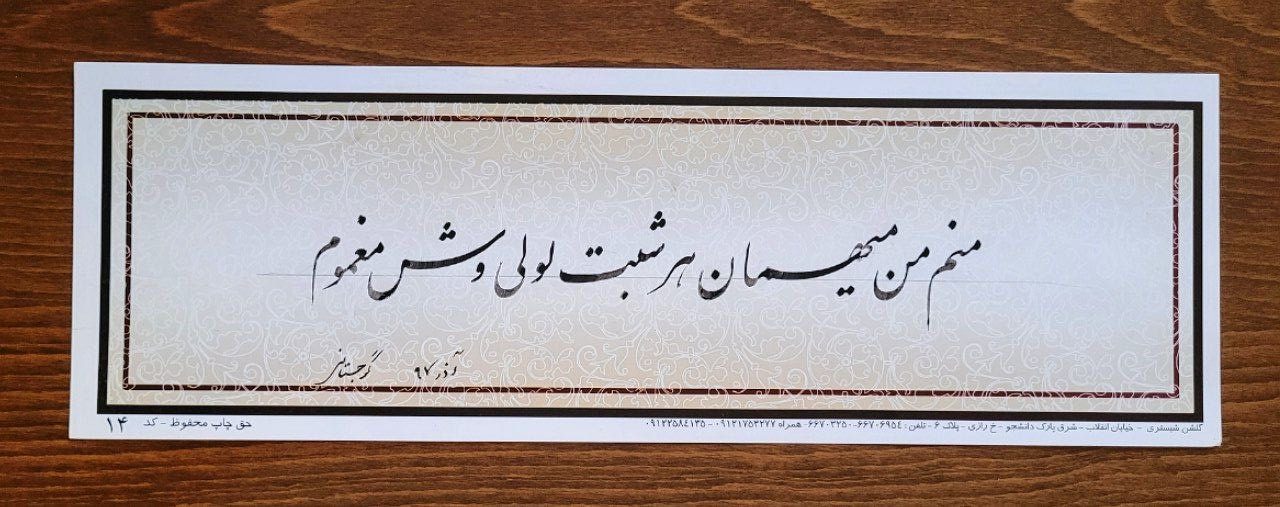 منم من میهمان هر شبت لولی وش مغموم
آذر ۹۷ گرجستانی
گلشن شبستری - خیابان انقلاب - شرق پارک دانشجو - خ رازی - پلاک ۶ - تلفن: ۶۶۷۰۶۹۵٤-۶۶۷۰۳۲۵۰ همراه ۰۹۱۲۱۷۵۳۲۷۷ - ۰۹۱۲۲۵۸٤۱۳۵
حق چاپ محفوظ - کد ۱۴